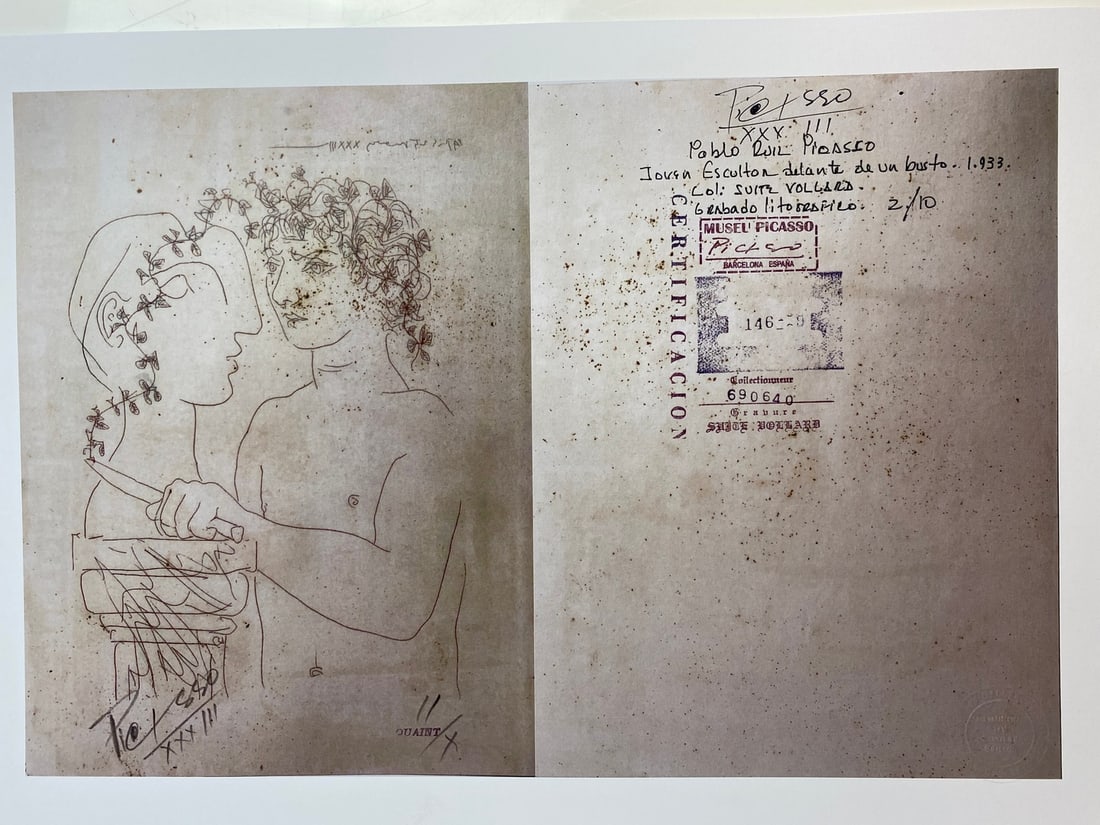 XXXIII
Picasso
XXXIII
II/X
QUAINT
Picasso
XXXIII
Pablo Ruiz Picasso
Joven Escultor delante de un busto. 1.933.
Col: SUITE VOLLARD.
Grabado litografico. 2/10
CERTIFICACION
MUSEU PiCASSO
Picasso
BARCELONA ESPAÑA
146-
Collectionneur
690640
Gravure
SUITE VOLLARD